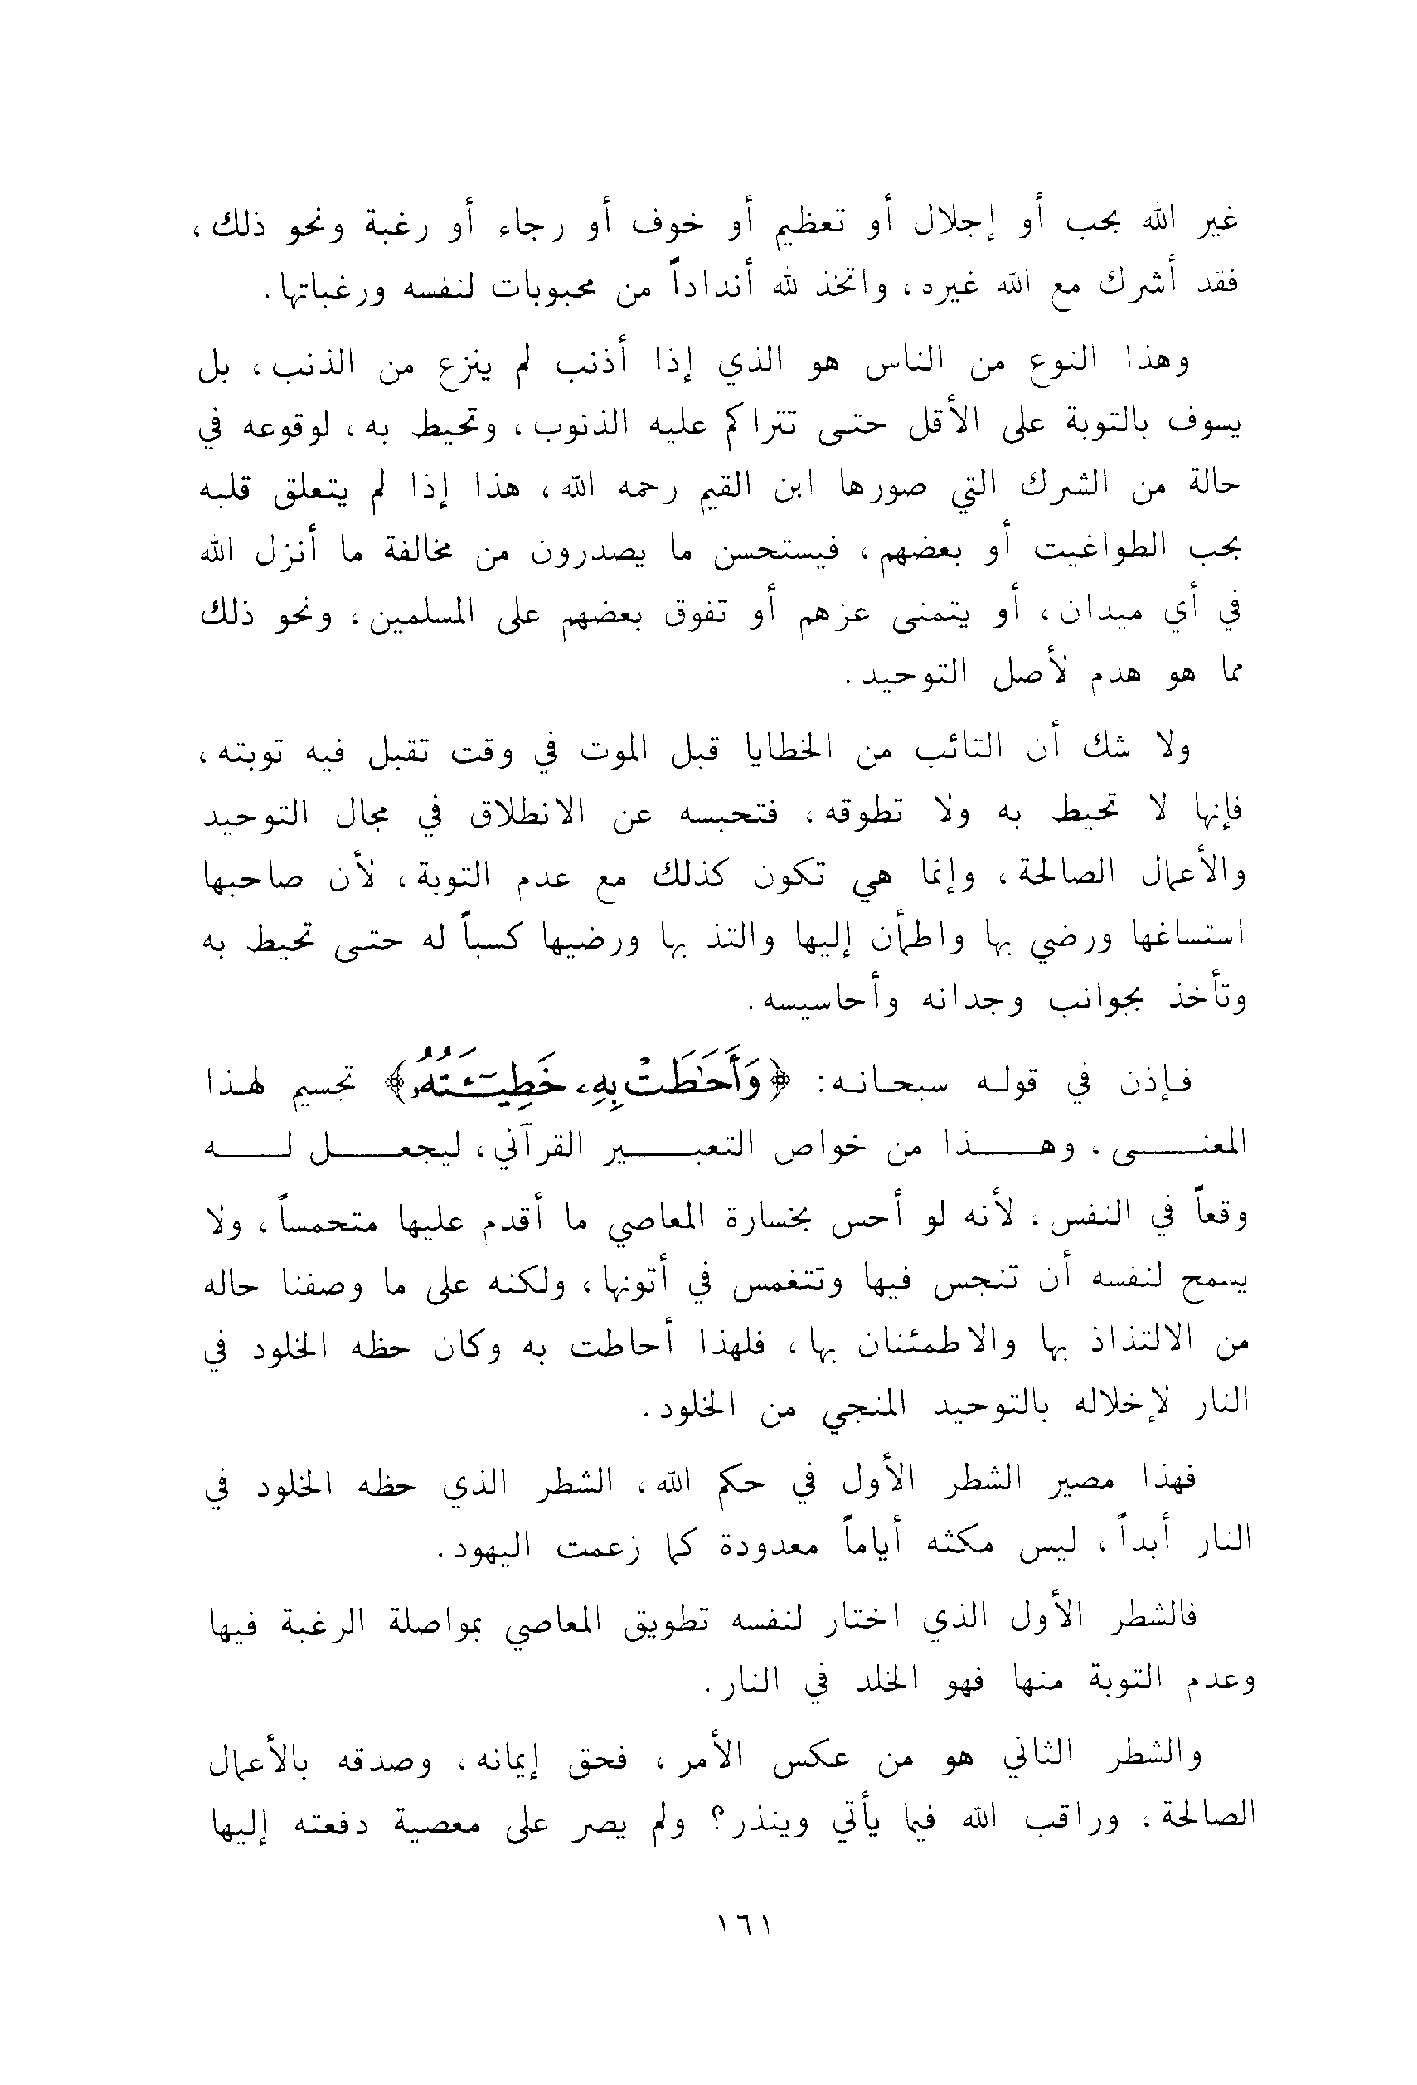 غير الله بحب أو إجلال أو تعظيم أو خوف أو رجاء أو رغبة ونحو ذلك،
فقد أشرك مع الله غيره، واتخذ لله أنداداً من محبوبات لنفسه ورغباتها.
وهذا النوع من الناس هو الذي إذا أذنب لم ينزع من الذنب، بل
يسوف بالتوبة على الأقل حتى تتراكم عليه الذنوب، وتحيط به، لوقوعه في
حالة من الشرك التي صورها ابن القيم رحمه الله، هذا إذا لم يتعلق قلبه
بحب الطواغيت أو بعضهم، فيستحسن ما يصدرون من مخالفة ما أنزل الله
في أي ميدان، أو يتمنى عزهم أو تفوق بعضهم على المسلمين، ونحو ذلك
مما هو هدم لأصل التوحيد.
ولا شك أن التائب من الخطايا قبل الموت في وقت تقبل فيه توبته،
فإنها لا تحيط به ولا تطوقه، فتحبسه عن الانطلاق في مجال التوحيد
والأعمال الصالحة، وإنما هي تكون كذلك مع عدم التوبة، لأن صاحبها
استساغها ورضي بها واطمأن إليها والتذ بها ورضيها كسباً له حتى تحيط به
وتأخذ بجوانب وجدانه وأحاسيسه.
فإذن في قوله سبحانه: ﴿وَأَحَٰطَتْ بِهِۦ خَطِيٓـَٔتُهُۥ﴾ تجسيم لهذا
المعنى، وهذا من خواص التعبير القرآني، ليجعل له
وقعاً في النفس، لأنه لو أحس بخسارة المعاصي ما أقدم عليها متحمساً، ولا
يسمح لنفسه أن تنجس فيها وتتغمس في أتونها، ولكنه على ما وصفنا حاله
من الالتذاذ بها والاطمئنان بها، فلهذا أحاطت به وكان حظه الخلود في
النار لإخلاله بالتوحيد المنجي من الخلود.
فهذا مصير الشطر الأول في حكم الله، الشطر الذي حظه الخلود في
النار أبداً، ليس مكثه أياماً معدودة كما زعمت اليهود.
فالشطر الأول الذي اختار لنفسه تطويق المعاصي بمواصلة الرغبة فيها
وعدم التوبة منها فهو الخلد في النار.
والشطر الثاني هو من عكس الأمر، فحق إيمانه، وصدقه بالأعمال
الصالحة، وراقب الله فيما يأتي وينذر؟ ولم يصر على معصية دفعته إليها
١٦١